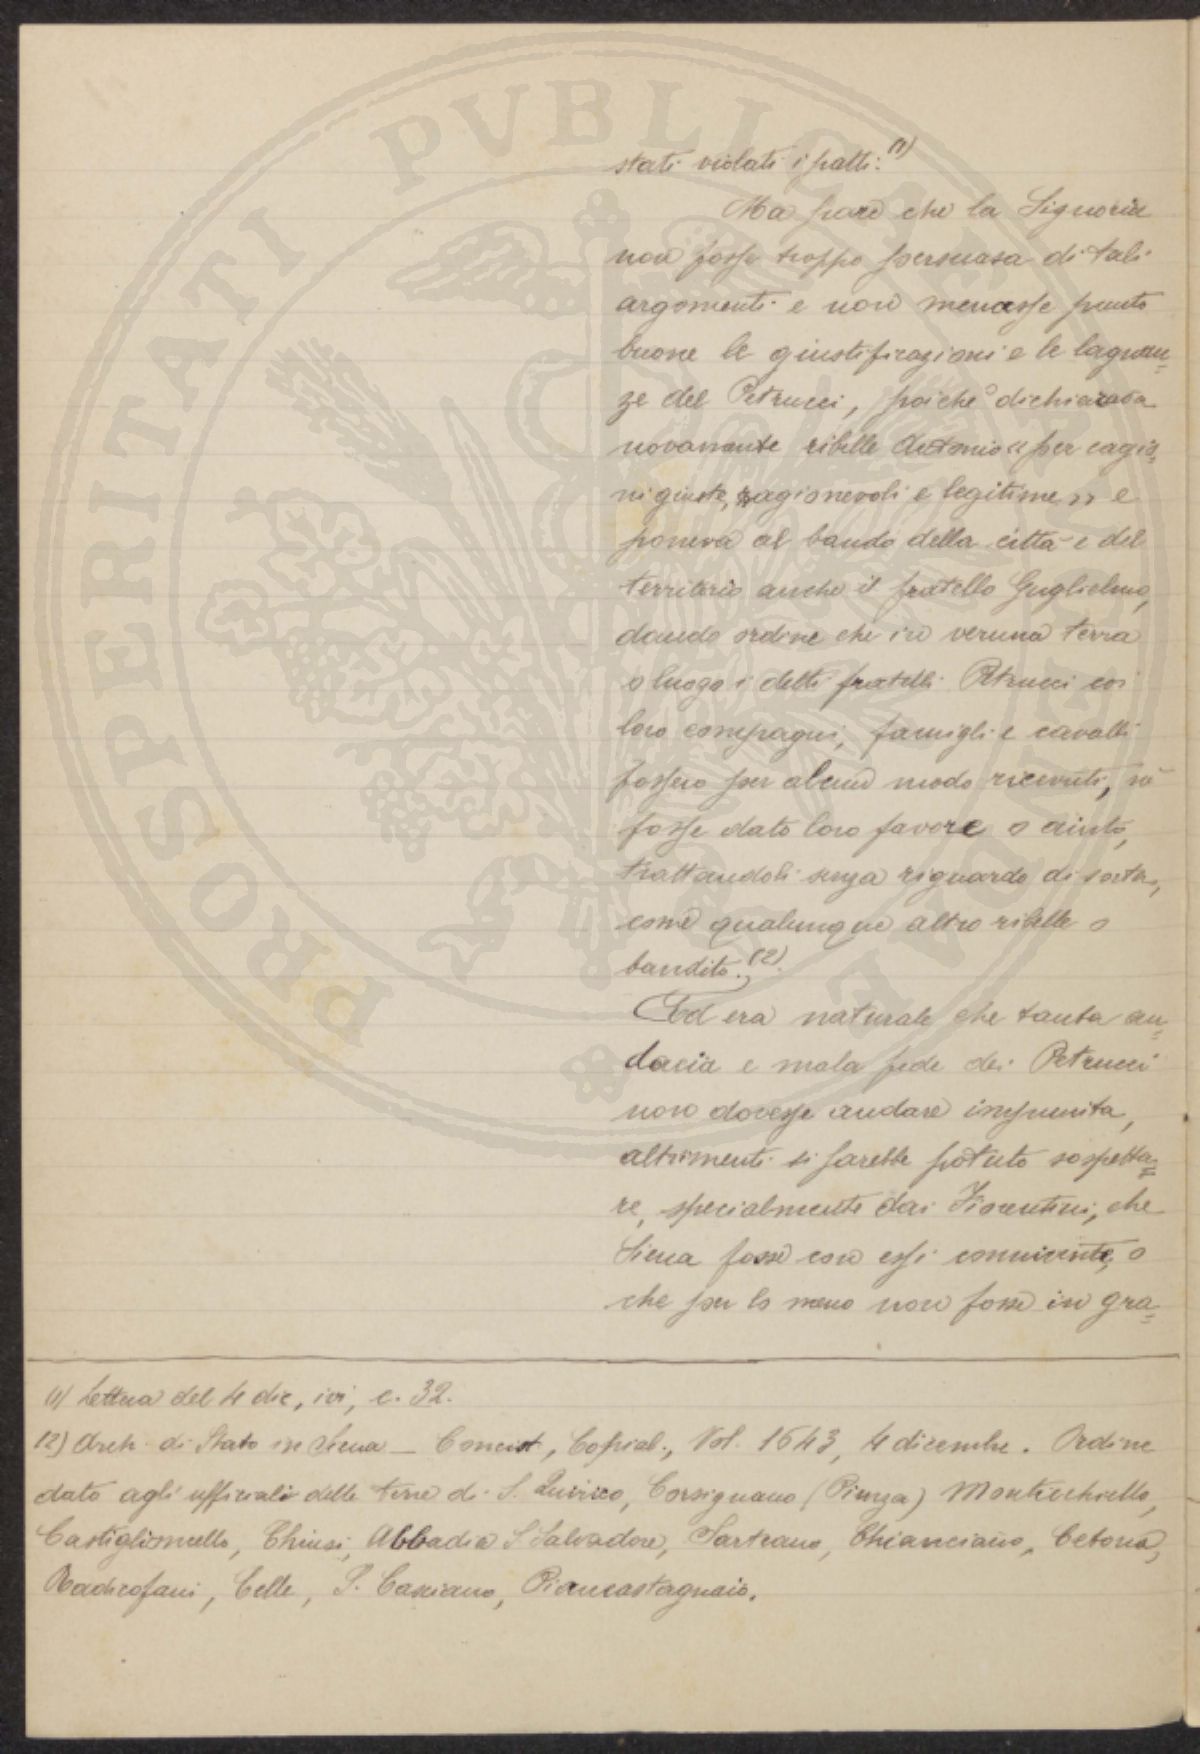 stati violati i patti.(1)
Ma pare che la Signoria
non fosse troppo persuasa di tali
argomenti e non menasse punto
buone le giustificazioni e le lagnan=
ze del Petrucci, poichè dichiarava
novamente ribelle Antonio « per cagio=
ni giuste, ragionevoli e legitime » e
poneva al bando della città e del
territorio anche il fratello Guglielmo,
dando ordine che in veruna terra
o luogo i detti fratelli Petrucci coi
loro compagni, famigli e cavalli
fossero per alcun modo ricevuti, nè
fosse dato loro favore o aiuto,
trattandoli senza riguardo di sorta,
come qualunque altro ribelle o
bandito.(2)
Ed era naturale che tanta au=
dacia e mala fede dei Petrucci
non dovesse andare impunita,
altrimenti si sarebbe potuto sospetta=
re, specialmente dai Fiorentini, che
Siena fosse con essi connivente, o
che per lo meno non fosse in gra=
(1) Lettera del 4 dic, ivi, c. 32.
(2) Arch. di Stato in Siena _ Concist, Copial., Vol. 1643, 4 dicembre. Ordine
dato agli ufficiali delle terre di S. Quirico, Corsignano (Pienza) Montecchiello,
Castiglioncello, Chiusi, Abbadia S. Salvadore, Sarteano, Chianciano, Cetona,
Radicofani, Celle, S. Casciano, Piancastagnaio.
PROSPERITATI PVBLICAE